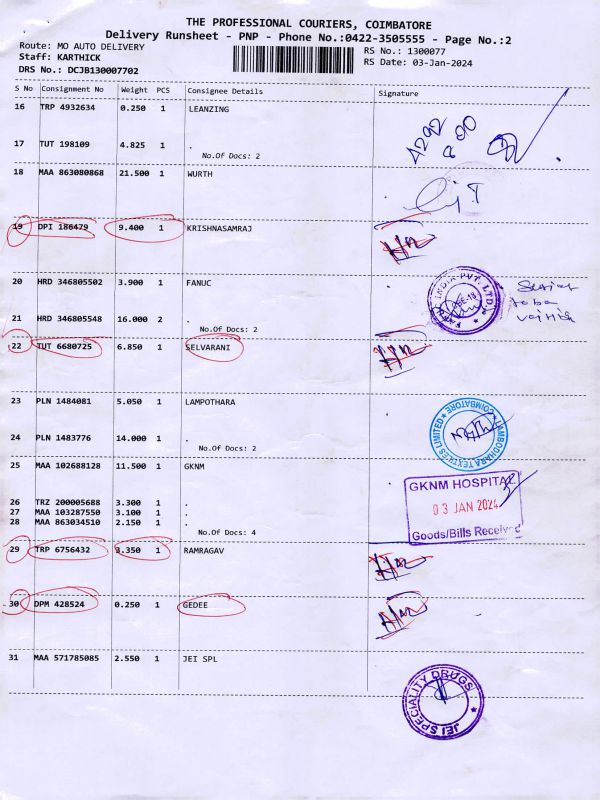 THE PROFESSIONAL COURIERS, COIMBATORE
Delivery Runsheet - PNP - Phone No.:0422-3505555 - Page No.:2
Route: MO AUTO DELIVERY
RS No.: 1300077
Staff: KARTHICK
RS Date: 03-Jan-2024
DRS No.: DCJB130007702
S No Consignment No Weight PCS Consignee Details Signature
16 TRP 4932634 0.250 1 LEANZING
17 TUT 198109 4.825 1 .
No.Of Docs: 2
18 MAA 863080868 21.500 1 WURTH
19 DPI 186479 9.400 1 KRISHNASAMRAJ
20 HRD 346805502 3.900 1 FANUC
21 HRD 346805548 16.000 2 .
No.Of Docs: 2
FANUC INDIA PVT. LTD.
22 TUT 6680725 6.850 1 SELVARANI
23 PLN 1484081 5.050 1 LAMPOTHARA
24 PLN 1483776 14.000 1 .
No.Of Docs: 2
LAMBODHARA TEXTILES LIMITED
COIMBATORE
25 MAA 102688128 11.500 1 GKNM
26 TRZ 200005688 3.300 1 .
27 MAA 103287550 3.100 1 .
28 MAA 863034510 2.150 1 .
No.Of Docs: 4
GKNM HOSPITAL
03 JAN 2024
Goods/Bills Received
29 TRP 6756432 3.350 1 RAMRAGAV
30 DPM 428524 0.250 1 GEDEE
31 MAA 571785085 2.550 1 JEI SPL
JEI SPECIALITY DRUGS